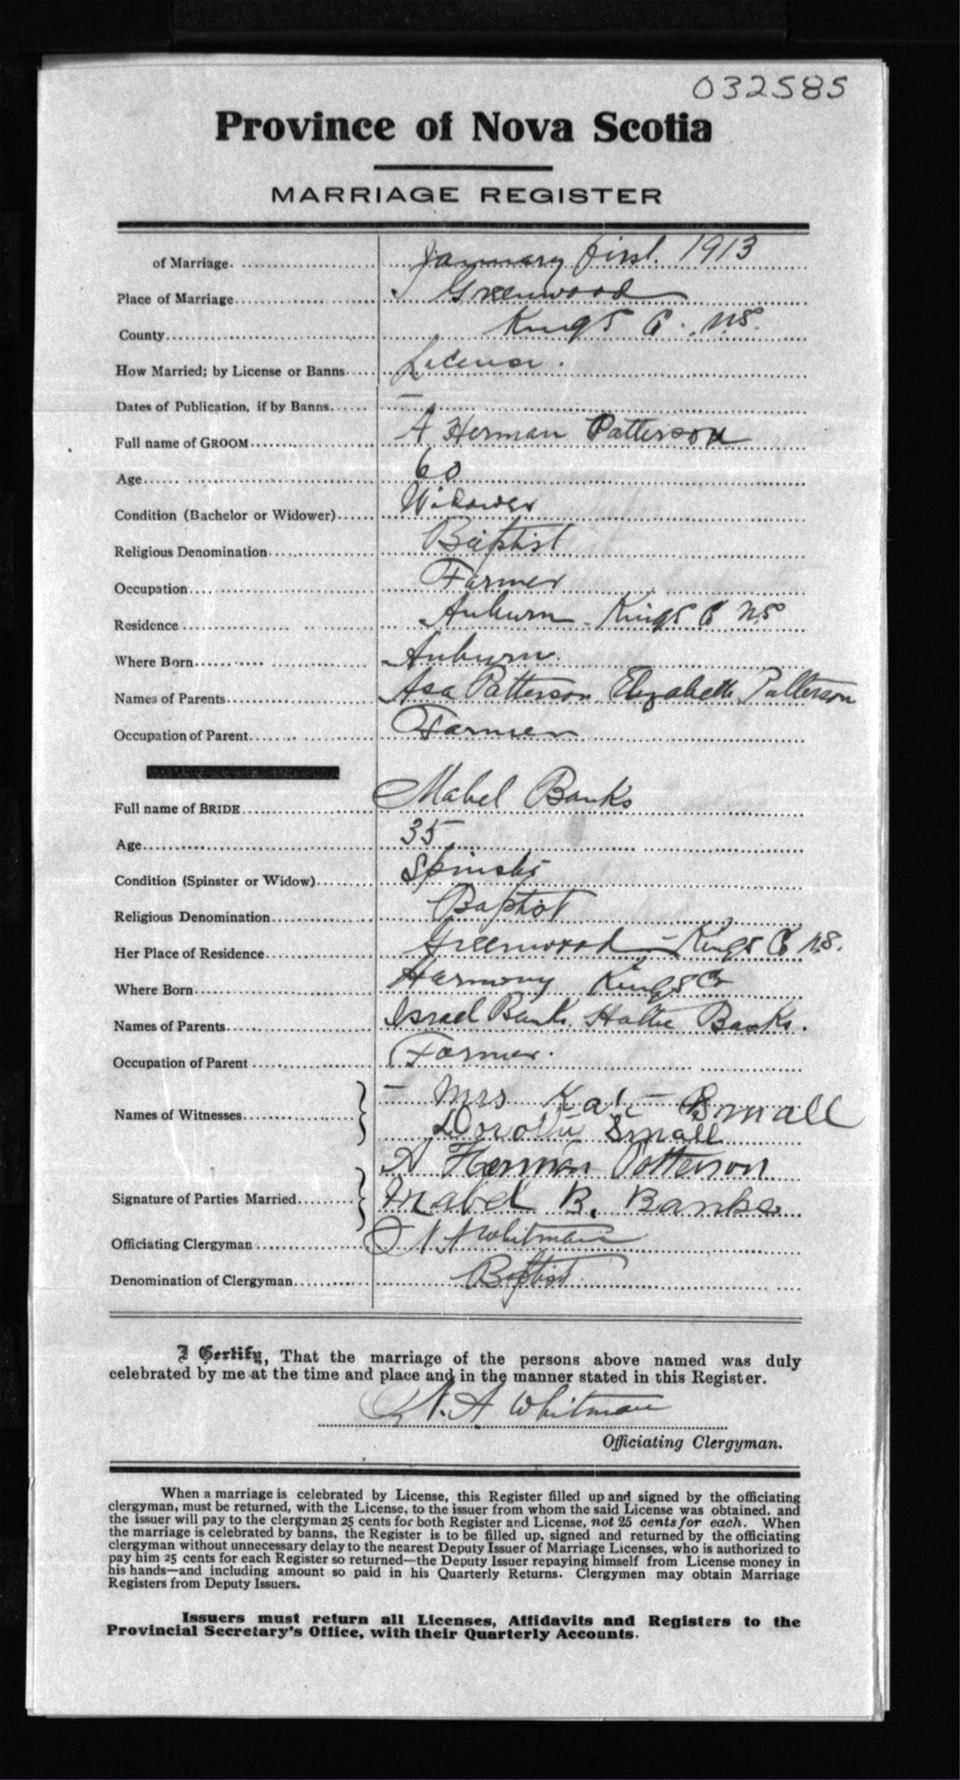 032585
Province of Nova Scotia
MARRIAGE REGISTER
of Marriage. January first. 1913
Place of Marriage Greenwood
County Kings Co. N.S.
How Married; by License or Banns License.
Dates of Publication, if by Banns. —
Full name of GROOM A Herman Patterson
Age 60
Condition (Bachelor or Widower) Widower
Religious Denomination Baptist
Occupation Farmer
Residence Auburn Kings Co N.S
Where Born Auburn.
Names of Parents Asa Patterson Elizabeth Patterson
Occupation of Parent Farmer
Full name of BRIDE Mabel Banks
Age 35
Condition (Spinster or Widow) Spinster
Religious Denomination Baptist
Her Place of Residence Greenwood — Kings Co N.S.
Where Born Harmony Kings Co
Names of Parents Israel Banks Hattie Banks.
Occupation of Parent Farmer.
Names of Witnesses — Mrs Small
Small
A Herman Patterson
Signature of Parties Married Mabel B. Banks
Officiating Clergyman Whitman
Denomination of Clergyman Baptist.
I Certify, That the marriage of the persons above named was duly
celebrated by me at the time and place and in the manner stated in this Register.
A. Whitman
Officiating Clergyman.
When a marriage is celebrated by License, this Register filled up and signed by the officiating
clergyman, must be returned, with the License, to the issuer from whom the said License was obtained, and
the issuer will pay to the clergyman 25 cents for both Register and License, not 25 cents for each. When
the marriage is celebrated by banns, the Register is to be filled up, signed and returned by the officiating
clergyman without unnecessary delay to the nearest Deputy Issuer of Marriage Licenses, who is authorized to
pay him 25 cents for each Register so returned—the Deputy Issuer repaying himself from License money in
his hands—and including amount so paid in his Quarterly Returns. Clergymen may obtain Marriage
Registers from Deputy Issuers.
Issuers must return all Licenses, Affidavits and Registers to the
Provincial Secretary's Office, with their Quarterly Accounts.